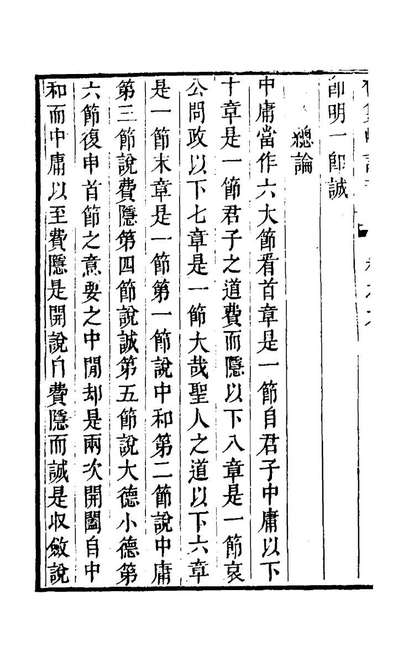 即明一即誠
總論
中庸當作六大節看首章是一節自君子中庸以下
十章是一節君子之道費而隱以下八章是一節哀
公問政以下七章是一節大哉聖人之道以下六章
是一節末章是一節第一節說中和第二節說中庸
第三節說費隱第四節說誠第五節說大德小德第
六節復申首節之意要之中閒却是兩次開闔自中
和而中庸以至費隱是開說自費隱而誠是収斂說